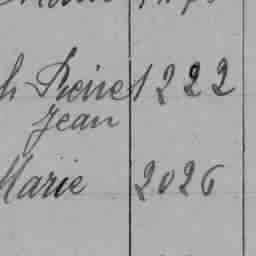 Reine 1222
Jean
Marie 2026